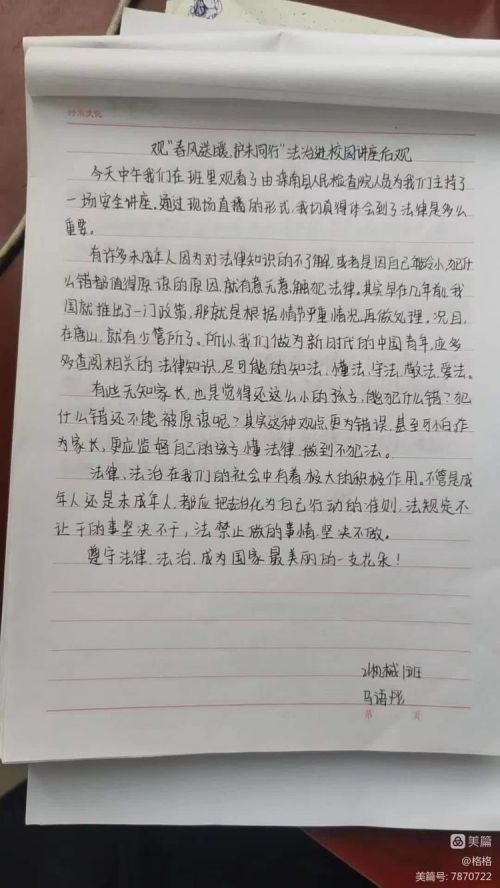 时尚文化
观"春风送暖、护未同行"法治进校园讲座后观
今天中午我们在班里观看了由滦南县人民检查院人员为我们主持了
一场安全讲座。通过现场直播的形式,我切真得体会到了法律是多么
重要。
有许多未成年人因为对法律知识的不了解,或者是因自己年令小,犯什
么错都值得原谅的原因,就有意无意触犯法律。其实早在几年前,我
国就推出了一门政策,那就是根据情节严重情况,再做处理。况且,
在唐山,就有少管所了。所以我们做为新时代的中国青年,应多
多查阅相关的法律知识,尽可能的知法、懂法、守法、敬法、爱法。
有些无知家长,也是觉得还这么小的孩子,能犯什么错?犯
什么错还不能被原谅呢?其实这种观点更为错误,甚至可怕。作
为家长,更应监督自己的孩子懂法律,做到不犯法。
法律、法治在我们的社会中有着极大的积极作用。不管是成
年人还是未成年人,都应把法治化为自己行动的准则,法规定不
让干的事坚决不干,法禁止做的事情,坚决不做。
遵守法律、法治,成为国家最美丽的一支花朵!
机械1班
马语
第 页
美篇
@格格
美篇号: 7870722